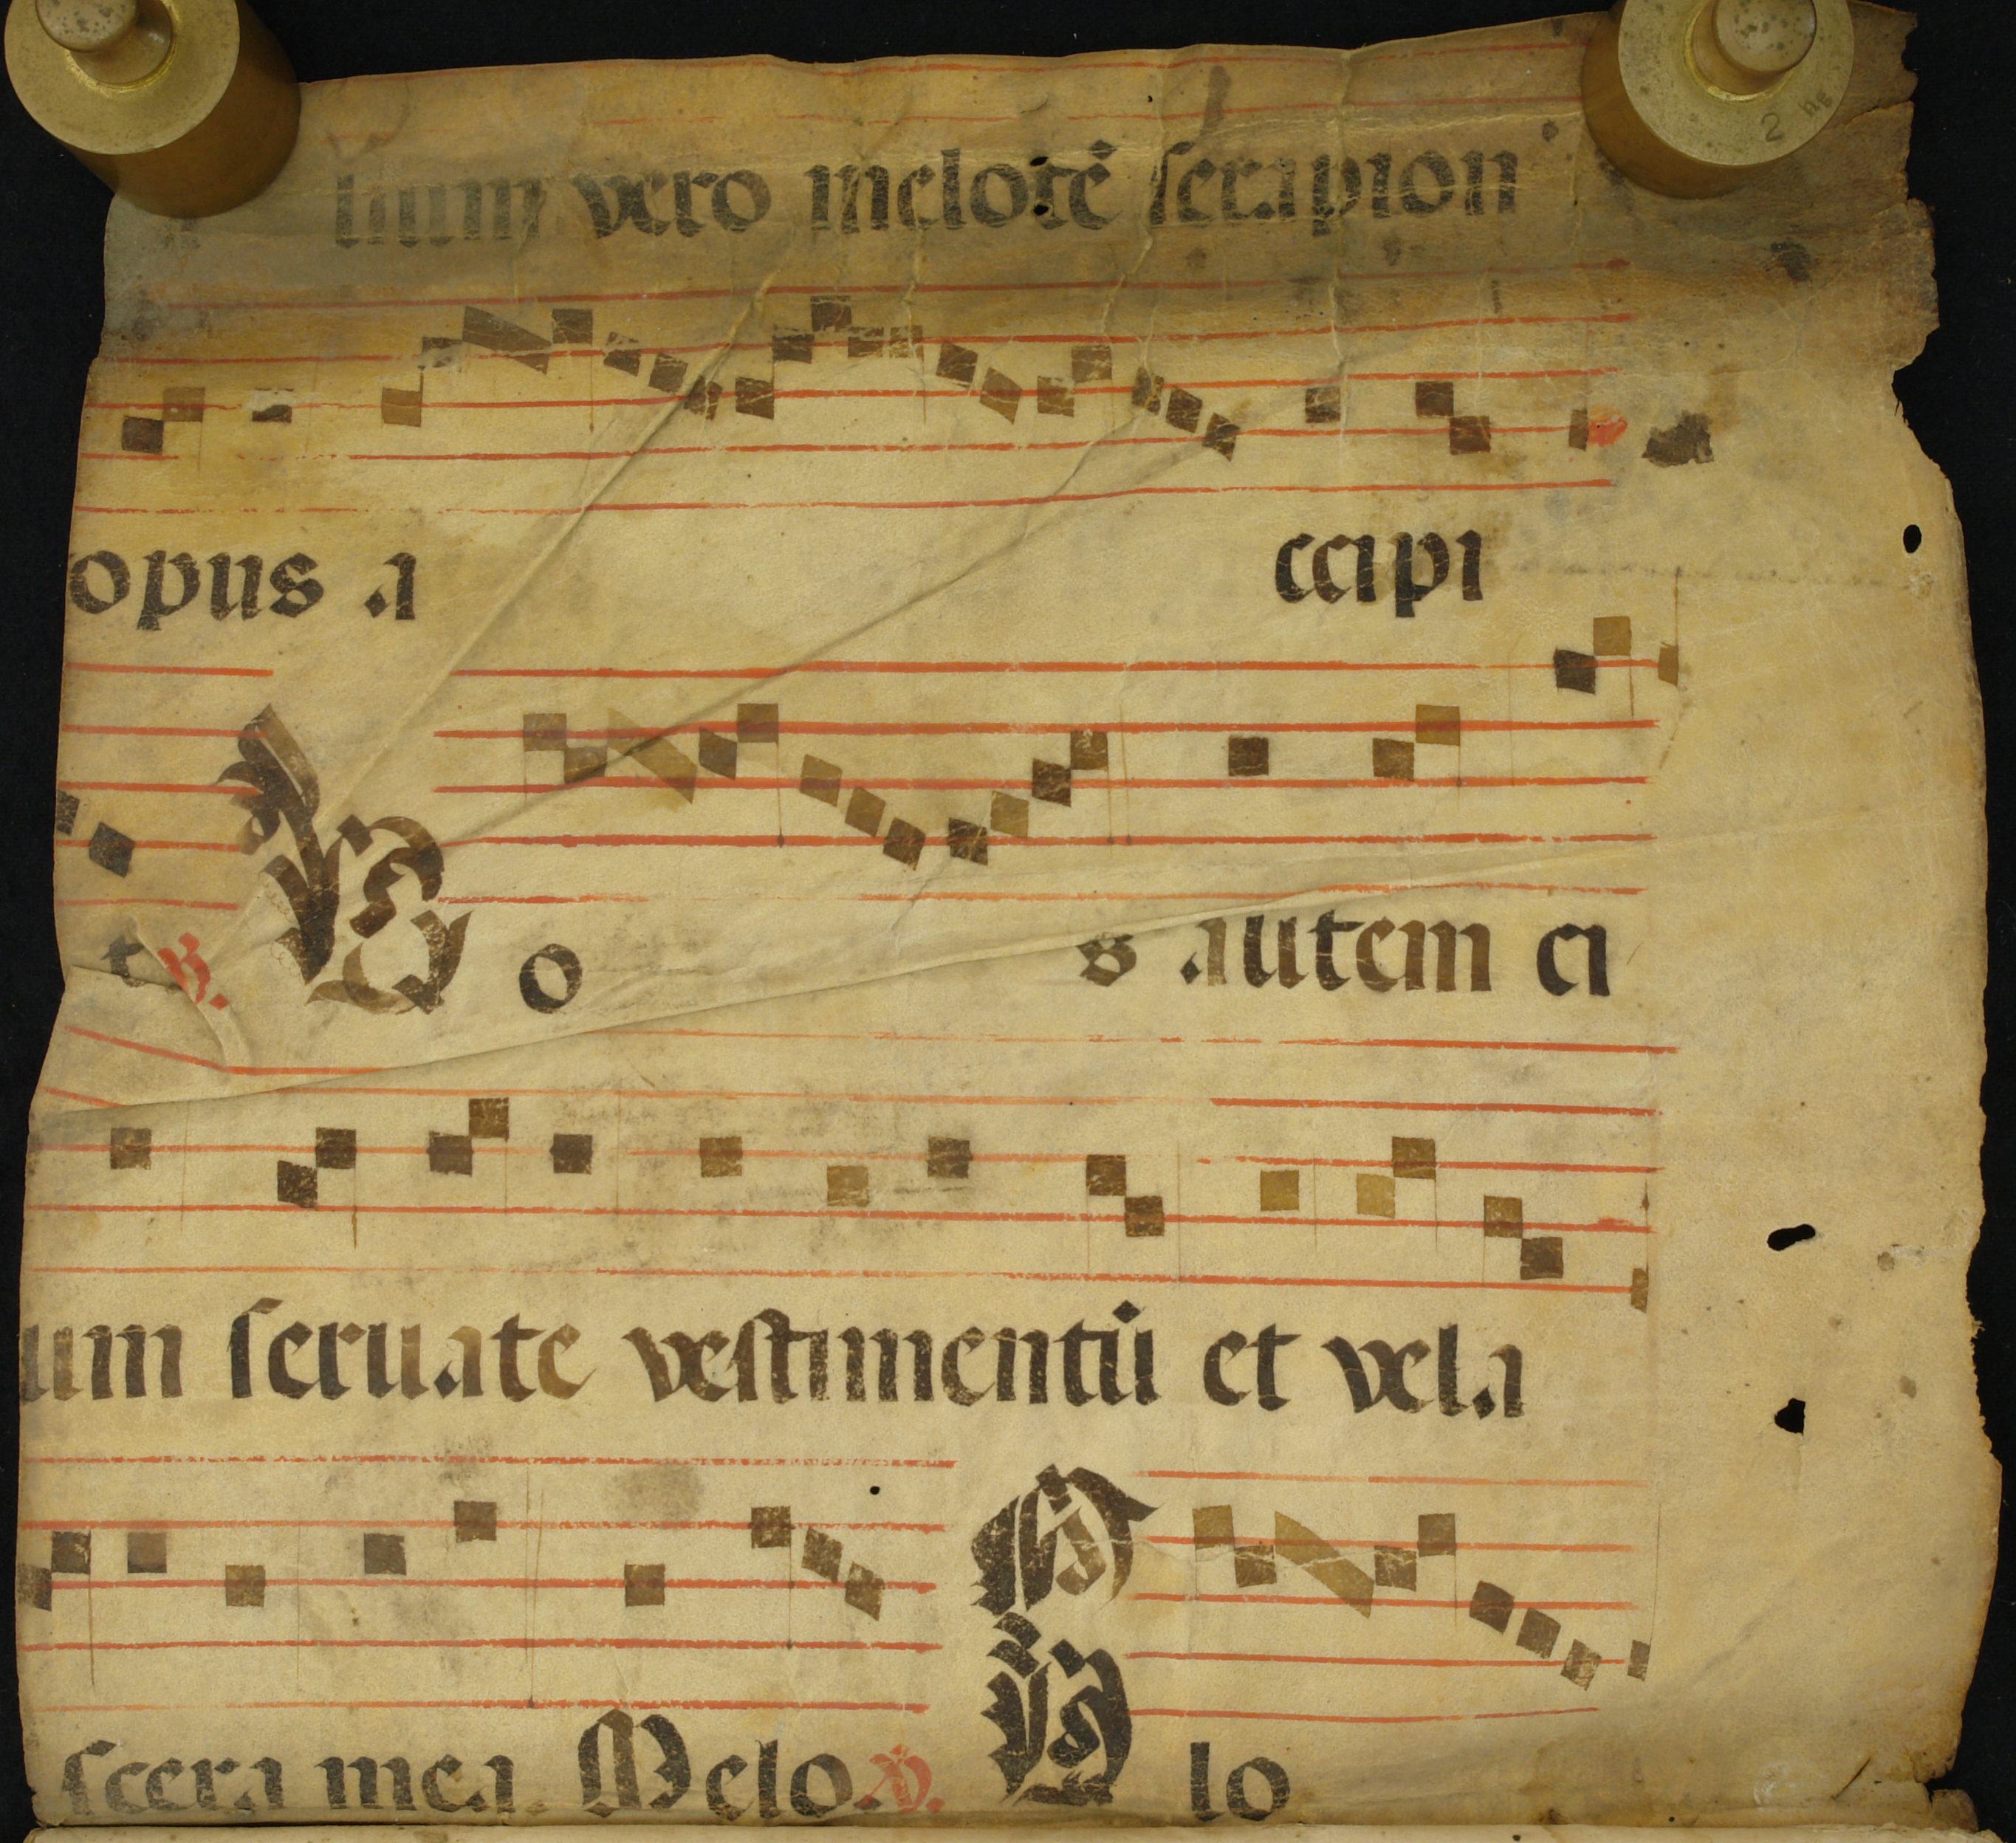 lium vero melotē serapion
opus a ccipi
t ℟. Vo s autem ci
um seruate vestimentū et vela
scera mea. Melo. ℣. Glo